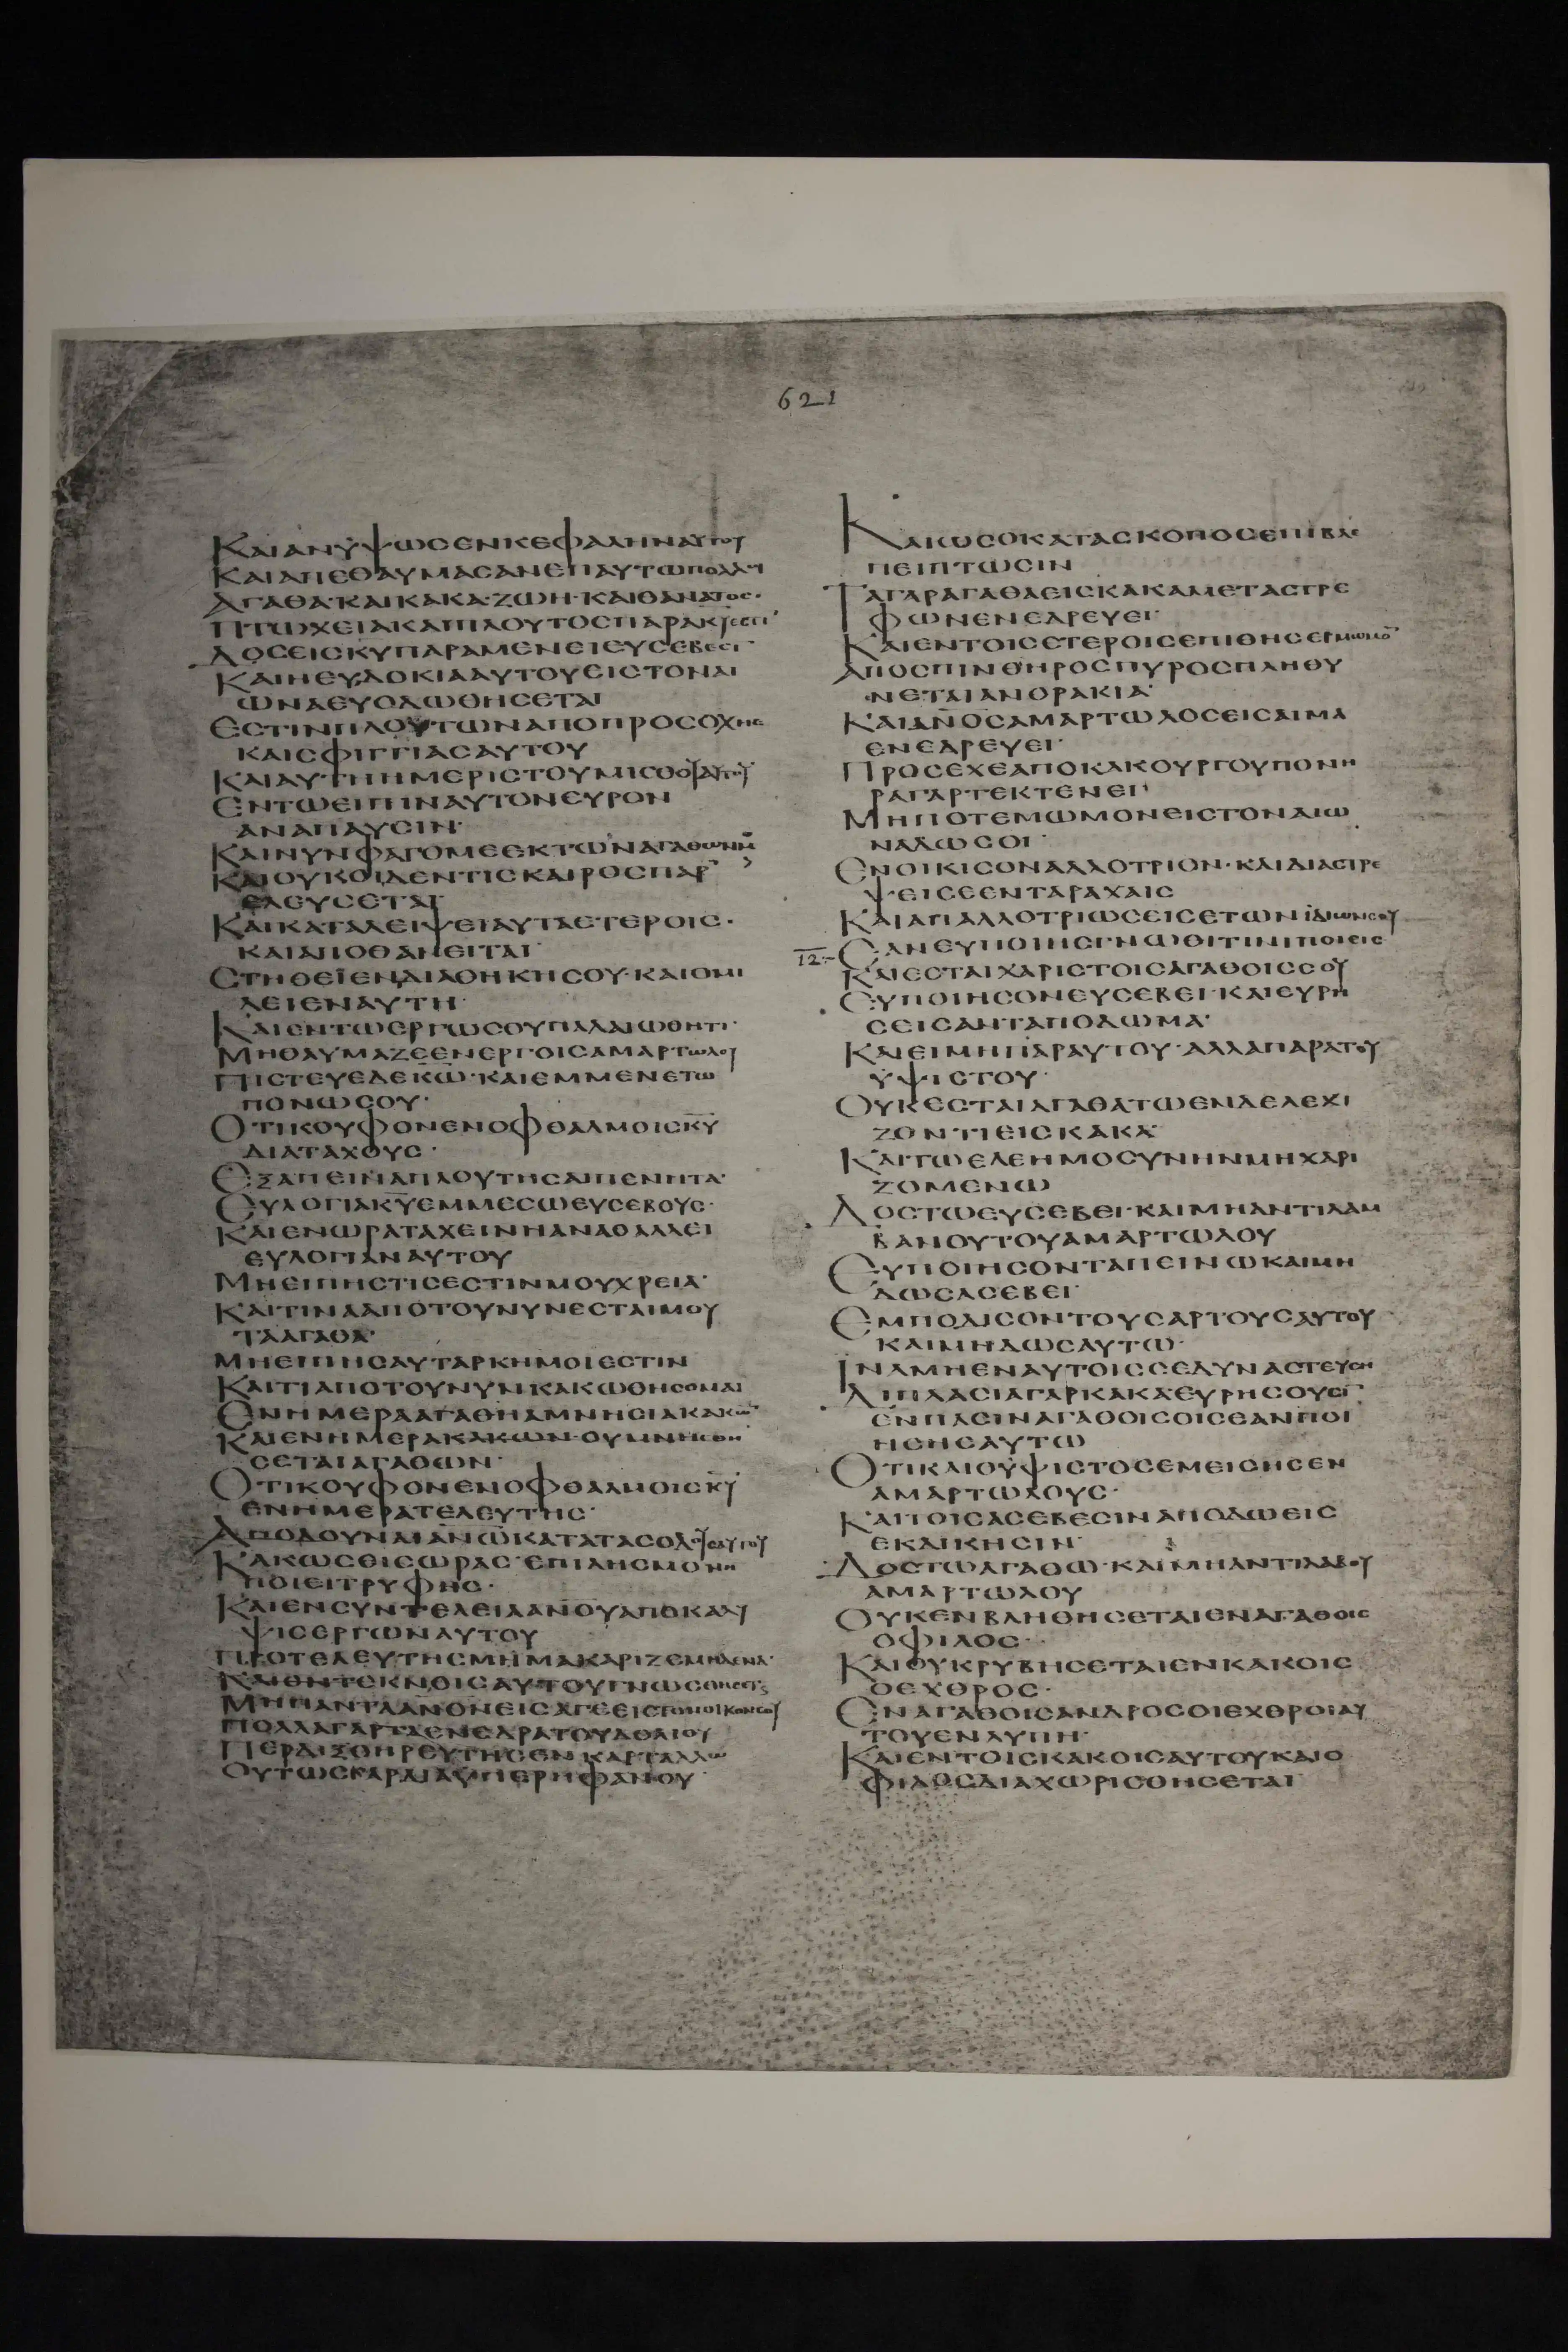 621
ΚΑΙΑΝΥΨΩϹΕΝΚΕΦΑΛΗΝΑΥΤΟΥ
ΚΑΙΑΠΕΘΑΥΜΑϹΑΝΕΠΑΥΤΩΠΟΛΛΟΙ
ΑΓΑΘΑ·ΚΑΙΚΑΚΑ·ΖΩΗ·ΚΑΙΘΑΝΑΤΟϹ·
ΠΤΩΧΕΙΑΚΑΙΠΛΟΥΤΟϹΠΑΡΑΚΥ͞ΕϹΤΙ
ΔΟϹΕΙϹΚΥ͞ΠΑΡΑΜΕΝΕΙΕΥϹΕΒΕϹΙ
ΚΑΙΗΕΥΔΟΚΙΑΑΥΤΟΥΕΙϹΤΟΝΑΙ
ΩΝΑΕΥΟΔΩΘΗϹΕΤΑΙ
ΕϹΤΙΝΠΛΟΥΤΩΝΑΠΟΠΡΟϹΟΧΗϹ
ΚΑΙϹΦΙΓΓΙΑϹΑΥΤΟΥ
ΚΑΙΑΥΤΗΗΜΕΡΙϹΤΟΥΜΙϹΘΟΥΑΥΤΟΥ
ΕΝΤΩΕΙΠΙΝΑΥΤΟΝΕΥΡΟΝ
ΑΝΑΠΑΥϹΙΝ·
ΚΑΙΝΥΝΦΑΓΟΜΕΕΚΤΩΝΑΓΑΘΩΝΜ͞
ΚΑΙΟΥΚΟΙΔΕΝΤΙϹΚΑΙΡΟϹΠΑΡ
ΕΛΕΥϹΕΤΑΙ
ΚΑΙΚΑΤΑΛΕΙΨΕΙΑΥΤΑΕΤΕΡΟΙϹ·
ΚΑΙΑΠΟΘΑΝΕΙΤΑΙ·
ϹΤΗΘΕΙΕΝΔΙΑΘΗΚΗϹΟΥ·ΚΑΙΟΜΙ
ΛΕΙΕΝΑΥΤΗ·
ΚΑΙΕΝΤΩΕΡΓΩϹΟΥΠΑΛΑΙΩΘΗΤΙ·
ΜΗΘΑΥΜΑΖΕΕΝΕΡΓΟΙϹΑΜΑΡΤΩΛΟΥ
ΠΙϹΤΕΥΕΔΕΚΩ͞·ΚΑΙΕΜΜΕΝΕΤΩ
ΠΟΝΩϹΟΥ·
ΟΤΙΚΟΥΦΟΝΕΝΟΦΘΑΛΜΟΙϹΚΥ͞
ΔΙΑΤΑΧΟΥϹ·
ΕΞΑΠΕΙΝΑΠΛΟΥΤΗϹΑΙΠΕΝΗΤΑ·
ΕΥΛΟΓΙΑΚΥ͞ΕΜΜΕϹΩΕΥϹΕΒΟΥϹ·
ΚΑΙΕΝΩΡΑΤΑΧΕΙΝΗΑΝΑΘΑΛΛΕΙ
ΕΥΛΟΓΙΑΝΑΥΤΟΥ
ΜΗΕΙΠΗϹΤΙϹΕϹΤΙΝΜΟΥΧΡΕΙΑ·
ΚΑΙΤΙΝΑΑΠΟΤΟΥΝΥΝΕϹΤΑΙΜΟΥ
ΤΑΑΓΑΘΑ·
ΜΗΕΙΠΗϹΑΥΤΑΡΚΗΜΟΙΕϹΤΙΝ
ΚΑΙΤΙΑΠΟΤΟΥΝΥΝΚΑΚΩΘΗϹΟΜΑΙ
ΕΝΗΜΕΡΑΑΓΑΘΗΑΜΝΗϹΙΑΚΑΚΩ͞
ΚΑΙΕΝΗΜΕΡΑΚΑΚΩΝ·ΟΥΜΝΗϹΘΗ
ϹΕΤΑΙΑΓΑΘΩΝ·
ΟΤΙΚΟΥΦΟΝΕΝΟΦΘΑΛΜΟΙϹΚΥ͞
ΕΝΗΜΕΡΑΤΕΛΕΥΤΗϹ·
ΑΠΟΔΟΥΝΑΙΑΝΩ͞ΚΑΤΑΤΑϹΟΔΟΥϹΑΥΤΟΥ
ΚΑΚΩϹΘΙϹΩΡΑϹ·ΕΠΙΛΗϹΜΟΝΗ
ΠΟΙΕΙΤΡΥΦΗϹ·
ΚΑΙΕΝϹΥΝΤΕΛΕΙΑΑΝΟΥ͞ΑΠΟΚΑΛΥ
ΨΙϹΕΡΓΩΝΑΥΤΟΥ
ΠΡΟΤΕΛΕΥΤΗϹΜΗΜΑΚΑΡΙΖΕΜΗΔΕΝΑ·
ΚΑΙΕΝΤΕΚΝΟΙϹΑΥΤΟΥΓΝΩϹΘΗϹΕΤ
ΜΗΠΑΝΤΑΑΝΟΝ͞ΕΙϹΑΓΕΕΙϹΤΟΝΟΙΚΟΝϹΟΥ
ΠΟΛΛΑΓΑΡΤΑΕΝΕΔΡΑΤΟΥΔΟΛΙΟΥ
ΠΕΡΔΙΞΘΗΡΕΥΤΗϹΕΝΚΑΡΤΑΛΛΩ
ΟΥΤΩϹΚΑΡΔΙΑΥΠΕΡΗΦΑΝΟΥ·
ΚΑΙΩϹΟΚΑΤΑϹΚΟΠΟϹΕΠΙΒΛΕ
ΠΕΙΠΤΩϹΙΝ
ΤΑΓΑΡΑΓΑΘΑΕΙϹΚΑΚΑΜΕΤΑϹΤΡΕ
ΦΩΝΕΝΕΔΡΕΥΕΙ·
ΚΑΙΕΝΤΟΙϹΕΤΕΡΟΙϹΕΠΙΘΗϹΕΙΜΩΜΟ͞
ΑΠΟϹΠΙΝΘΗΡΟϹΠΥΡΟϹΠΛΗΘΥ
ΝΕΤΑΙΑΝΘΡΑΚΙΑ·
ΚΑΙΑΝΟ͞ϹΑΜΑΡΤΩΛΟϹΕΙϹΑΙΜΑ
ΕΝΕΔΡΕΥΕΙ·
ΠΡΟϹΕΧΕΑΠΟΚΑΚΟΥΡΓΟΥΠΟΝΗ
ΡΑΓΑΡΤΕΚΤΕΝΕΙ
ΜΗΠΟΤΕΜΩΜΟΝΕΙϹΤΟΝΑΙΩ
ΝΑΔΩϹΟΙ·
ΕΝΟΙΚΙϹΟΝΑΛΛΟΤΡΙΟΝ·ΚΑΙΔΙΑϹΤΡΕ
ΨΕΙϹΕΕΝΤΑΡΑΧΑΙϹ
ΚΑΙΑΠΑΛΛΟΤΡΙΩϹΕΙϹΕΤΩΝΙΔΙΩΝϹΟΥ
12 ΕΑΝΕΥΠΟΙΗϹΓΝΩΘΙΤΙΝΙΠΟΙΕΙϹ
ΚΑΙΕϹΤΑΙΧΑΡΙϹΤΟΙϹΑΓΑΘΟΙϹϹΟΥ
ΕΥΠΟΙΗϹΟΝΕΥϹΕΒΕΙ·ΚΑΙΕΥΡΗ
ϹΕΙϹΑΝΤΑΠΟΔΩΜΑ·
ΚΑΙΕΙΜΗΠΑΡΑΥΤΟΥ·ΑΛΛΑΠΑΡΑΤΟΥ
ΥΨΙϹΤΟΥ·
ΟΥΚΕϹΤΑΙΑΓΑΘΑΤΩΕΝΔΕΛΕΧΙ
ΖΟΝΤΙΕΙϹΚΑΚΑ
ΚΑΙΤΩΕΛΕΗΜΟϹΥΝΗΝΜΗΧΑΡΙ
ΖΟΜΕΝΩ
ΔΟϹΤΩΕΥϹΕΒΕΙ·ΚΑΙΜΗΑΝΤΙΛΑΜ
ΒΑΝΟΥΤΟΥΑΜΑΡΤΩΛΟΥ
ΕΥΠΟΙΗϹΟΝΤΑΠΕΙΝΩΚΑΙΜΗ
ΔΩϹΑϹΕΒΕΙ·
ΕΜΠΟΔΙϹΟΝΤΟΥϹΑΡΤΟΥϹΑΥΤΟΥ
ΚΑΙΜΗΔΩϹΑΥΤΩ·
ΙΝΑΜΗΕΝΑΥΤΟΙϹϹΕΔΥΝΑϹΤΕΥϹΗ
ΔΙΠΛΑϹΙΑΓΑΡΚΑΚΑΕΥΡΗϹΟΥϹΙ
ΕΝΠΑϹΙΝΑΓΑΘΟΙϹΟΙϹΕΑΝΠΟΙ
ΗϹΗϹΑΥΤΩ
ΟΤΙΚΑΙΟΥΨΙϹΤΟϹΕΜΕΙϹΗϹΕΝ
ΑΜΑΡΤΩΛΟΥϹ·
ΚΑΙΤΟΙϹΑϹΕΒΕϹΙΝΑΠΟΔΩΕΙϹ
ΕΚΔΙΚΗϹΙΝ·
ΔΟϹΤΩΑΓΑΘΩ·ΚΑΙΜΗΑΝΤΙΛΑΒΟΥ
ΑΜΑΡΤΩΛΟΥ
ΟΥΚΕΝΒΛΗΘΗϹΕΤΑΙΕΝΑΓΑΘΟΙϹ
ΟΦΙΛΟϹ·
ΚΑΙΟΥΚΡΥΒΗϹΕΤΑΙΕΝΚΑΚΟΙϹ
ΟΕΧΘΡΟϹ·
ΕΝΑΓΑΘΟΙϹΑΝΔΡΟϹΟΙΕΧΘΡΟΙΑΥ
ΤΟΥΕΝΛΥΠΗ·
ΚΑΙΕΝΤΟΙϹΚΑΚΟΙϹΑΥΤΟΥΚΑΙΟ
ΦΙΛΟϹΔΙΑΧΩΡΙϹΘΗϹΕΤΑΙ